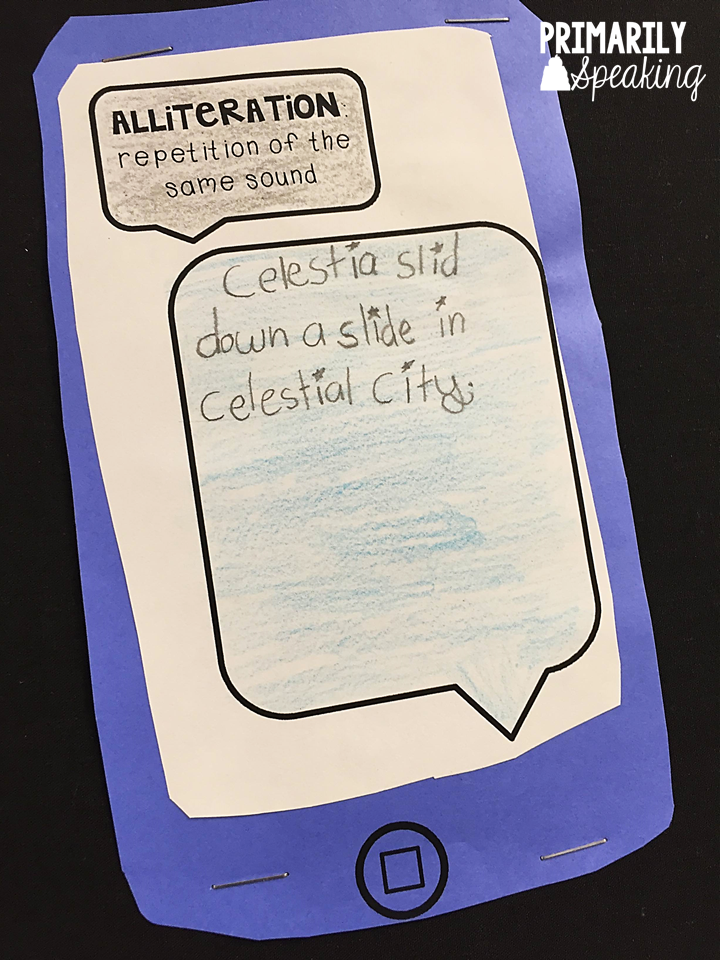 PRIMARILY
Speaking
ALLiTERATiON:
repetition of the
same sound
Celestia slid
down a slide in
Celestial City.